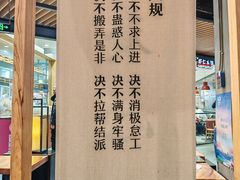 规
不不求上进 决不消极怠工
不蛊惑人心 决不满身牢骚
不搬弄是非 决不拉帮结派